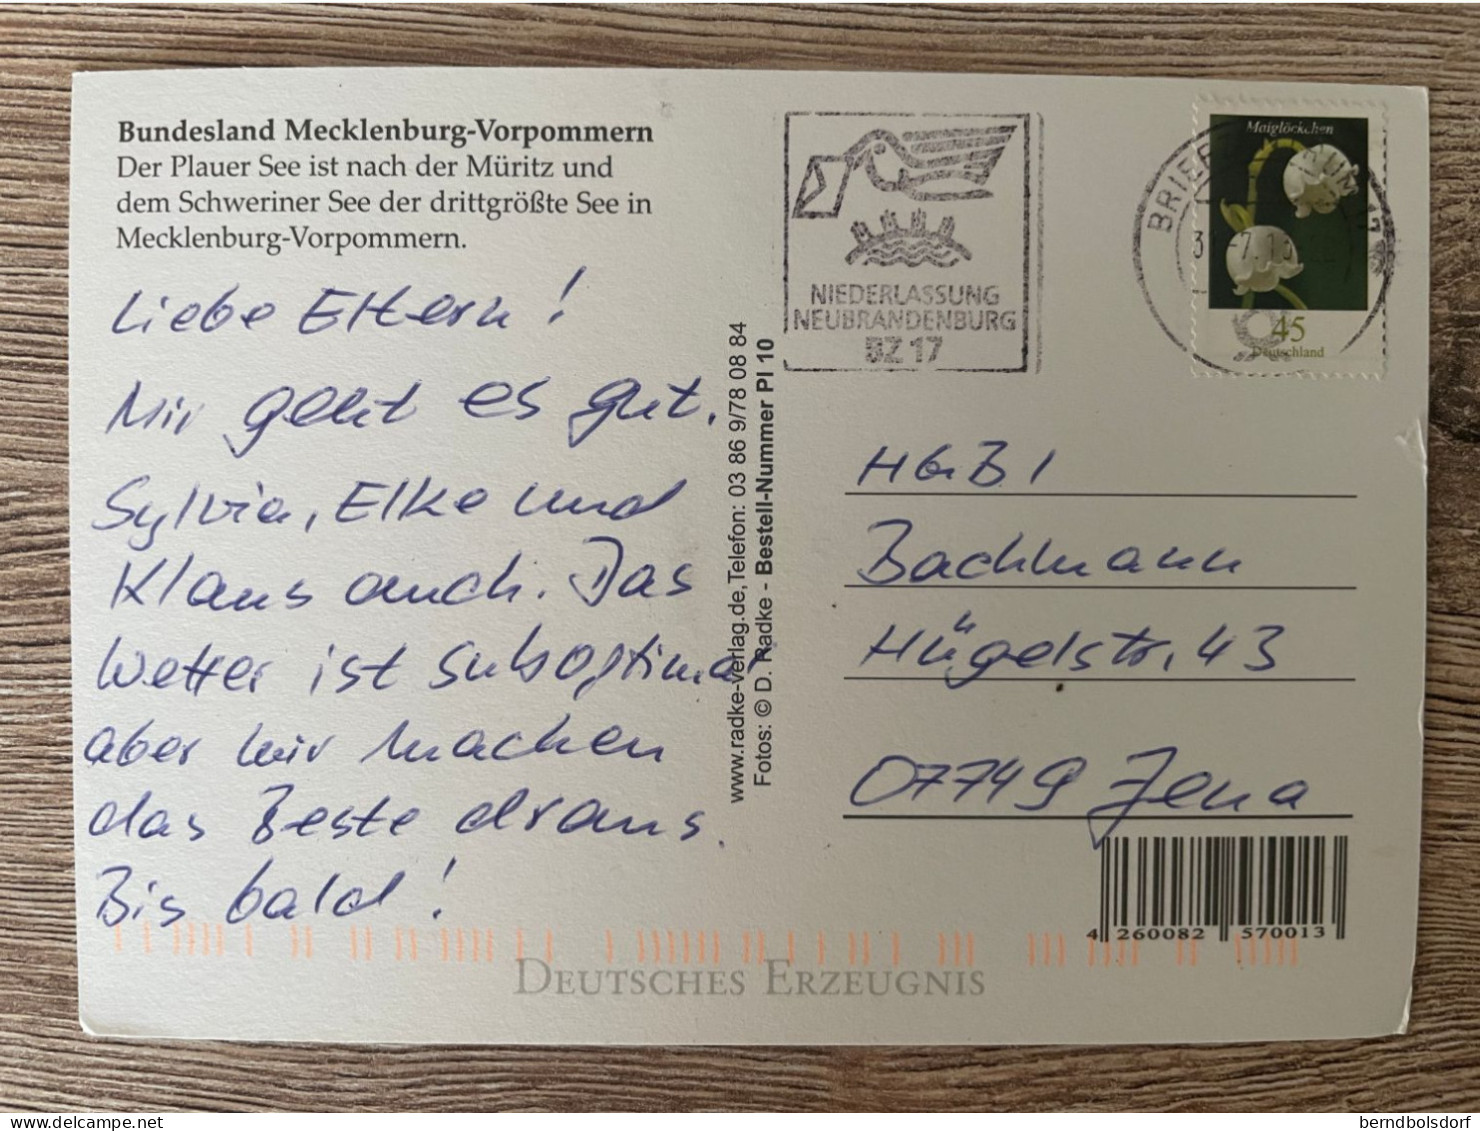 Bundesland Mecklenburg-Vorpommern
Der Plauer See ist nach der Müritz und
dem Schweriner See der drittgrößte See in
Mecklenburg-Vorpommern.
Liebe Eltern!
Mir geht es gut.
Sylvia, Elke und
Klaus auch. Das
Wetter ist suboptimal
aber wir machen
das Beste draus.
Bis bald!
www.radke-verlag.de, Telefon: 03 86 9/78 08 84
Fotos: © D. Radke - Bestell-Nummer Pl 10
NIEDERLASSUNG
NEUBRANDENBURG
BZ 17
Maiglöckchen
45
Deutschland
H&B I
Bachmann
Hügelstr. 43
07749 Jena
4 260082 570013
DEUTSCHES ERZEUGNIS
delcampe.net
berndbolsdorf